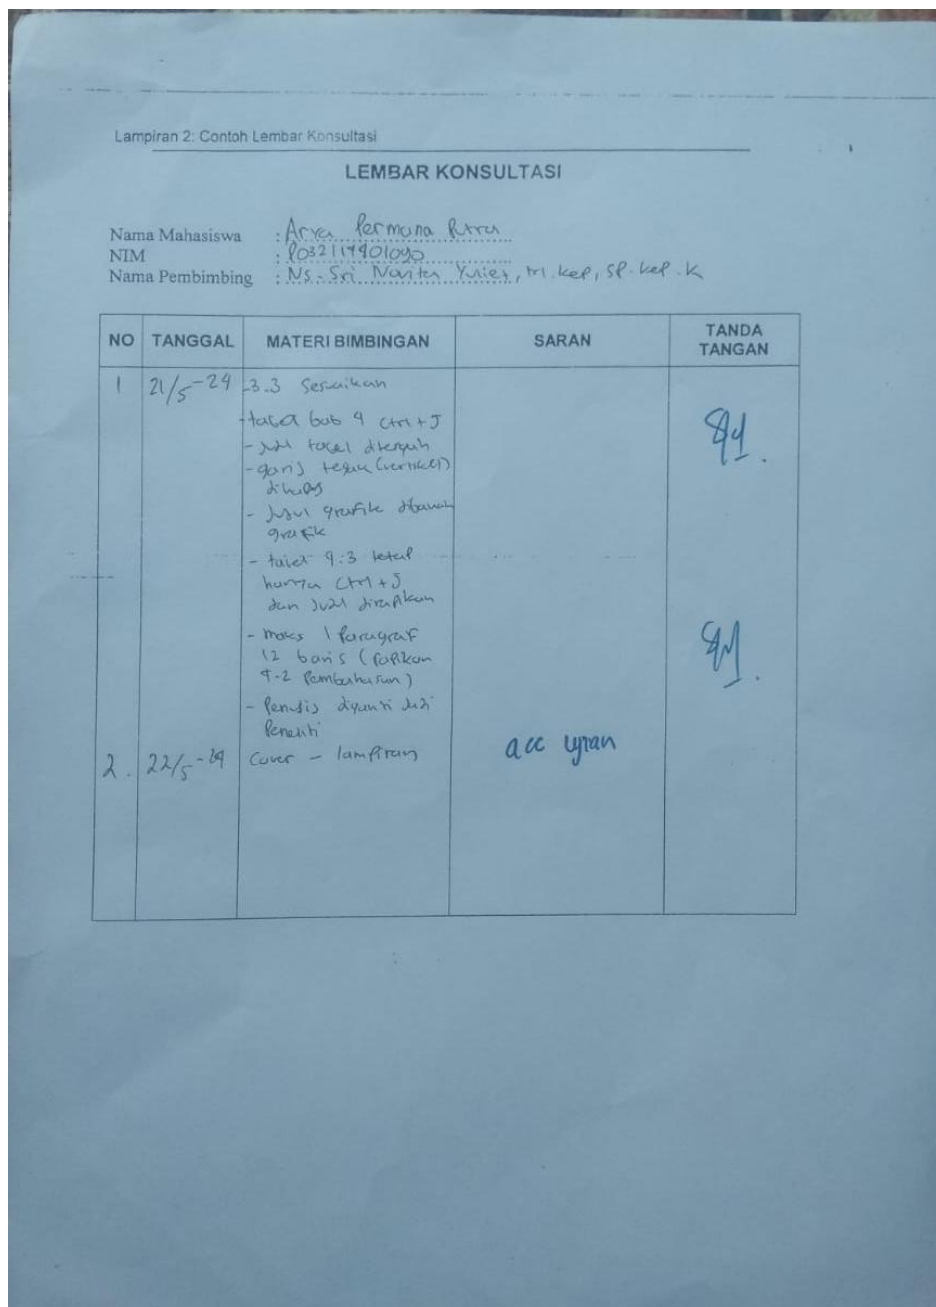 Lampiran 2: Contoh Lembar Konsultasi
LEMBAR KONSULTASI
Nama Mahasiswa : Arya Permana Putra
NIM :
Nama Pembimbing : Ns. Sri Novita, M.kep, Sp.kep.K
NO TANGGAL MATERI BIMBINGAN SARAN TANDA TANGAN
1 21/5-24 -3.3 Sesuaikan
bab 4 Ctrl+J
- judul tabel ditengah
- garis tegak (vertikel)
dihapus
- Judul grafik dibawah
grafik
- tabel 4.3
Ctrl+J
dan Judul dirapikan
- maks 1 Paragraf
12 baris (rapikan
4-2 Pembahasan)
- Penulis diganti
Peneliti
2. 22/5-24 Cover - lampiran acc ujian